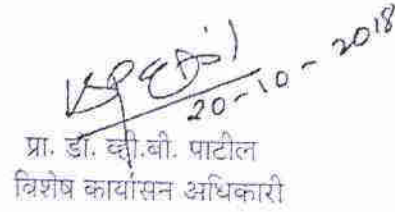 20-10-2018
प्रा. डॉ. व्ही.बी. पाटील
विशेष कार्यासन अधिकारी